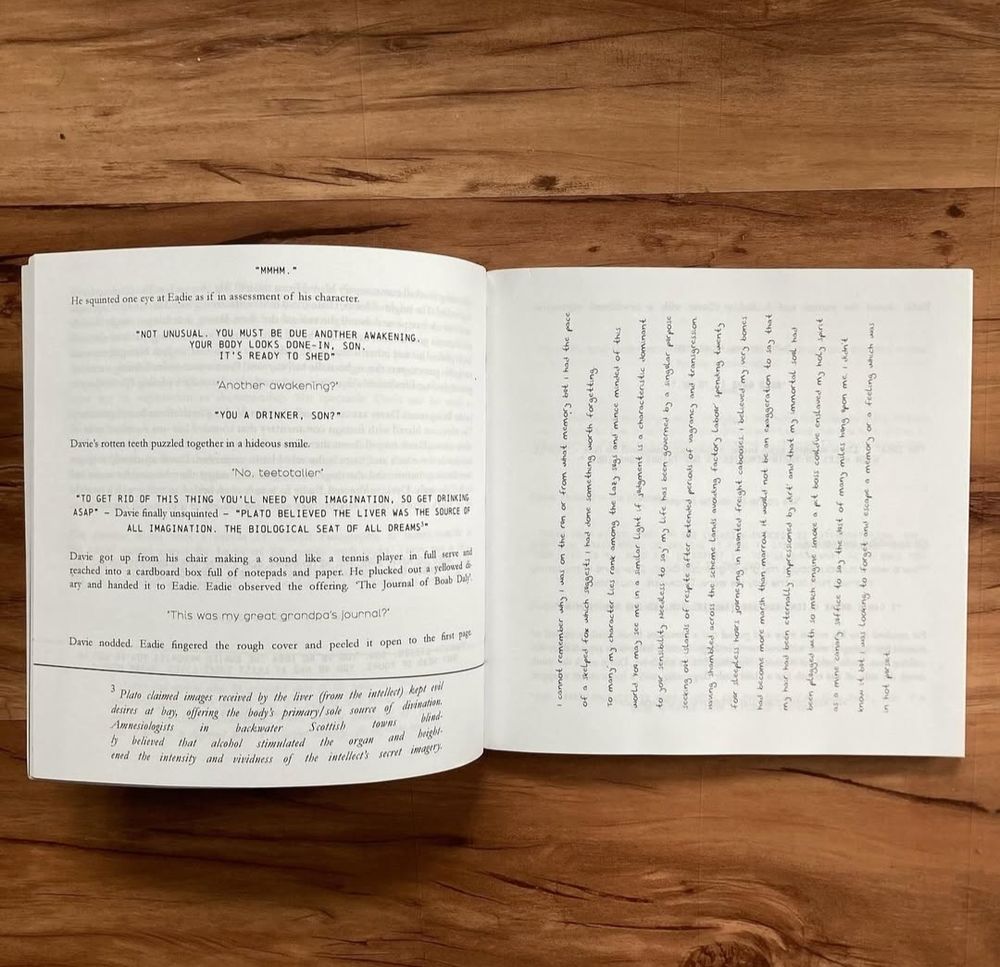 "MMHM."
He squinted one eye at Eadie as if in assessment of his character.
"NOT UNUSUAL. YOU MUST BE DUE ANOTHER AWAKENING.
YOUR BODY LOOKS DONE-IN, SON.
IT'S READY TO SHED"
'Another awakening?'
"YOU A DRINKER, SON?"
Davie's rotten teeth puzzled together in a hideous smile.
'No, teetotaller'
"TO GET RID OF THIS THING YOU'LL NEED YOUR IMAGINATION, SO GET DRINKING
ASAP" – Davie finally unsquinted – "PLATO BELIEVED THE LIVER WAS THE SOURCE OF
ALL IMAGINATION. THE BIOLOGICAL SEAT OF ALL DREAMS³"
Davie got up from his chair making a sound like a tennis player in full serve and
reached into a cardboard box full of notepads and paper. He plucked out a yellowed di-
ary and handed it to Eadie. Eadie observed the offering, 'The Journal of Boab Daly'.
'This was my great grandpa's journal?'
Davie nodded. Eadie fingered the rough cover and peeled it open to the first page
³ Plato claimed images received by the liver (from the intellect) kept evil
desires at bay, offering the body's primary/sole source of divination.
Amnesiologists in backwater Scottish towns blind-
ly believed that alcohol stimulated the organ and height-
ened the intensity and vividness of the intellect's secret imagery.
I cannot remember why I was on the run or from what memory but I had the pace
of a skelped fox which suggests I had done something worth forgetting
To many my character lies rank among the lazy legs and mince minded of this
world You may see me in a similar light if judgment is a characteristic dominant
to your sensibility Needless to say my life has been governed by a singular purpose
seeking out islands of respite after extended periods of vagrancy and transgression
Having shambled across the scheme lands avoiding factory labour spending twenty
four sleepless hours journeying in haunted freight cabooses I believed my very bones
had become more marsh than marrow It would not be an exaggeration to say that
my hair had been eternally impressioned by dirt and that my immortal soul had
been plagued with so much engine smoke a pit boss could've enslaved my holy spirit
as a mine canary Suffice to say the dust of many miles hung upon me I didn't
know it but I was looking to forget and escape a memory or a feeling which was
in hot pursuit